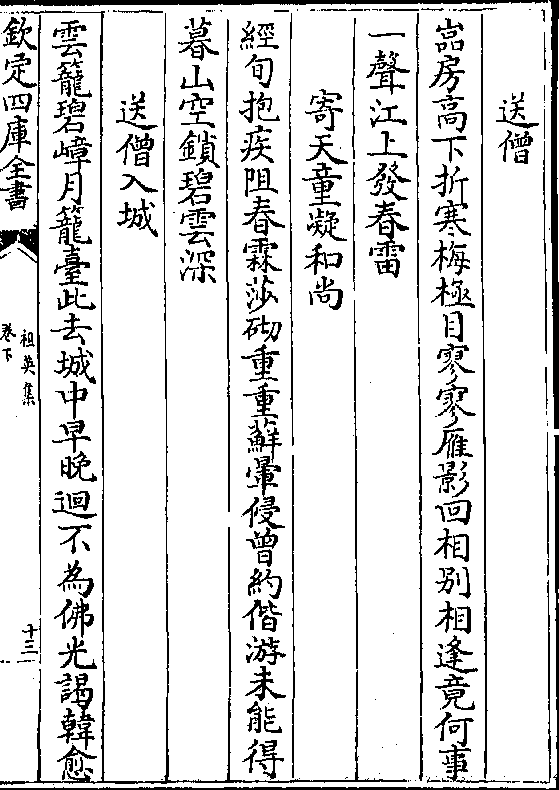 送僧
嵓房高下折寒梅極目寥寥雁影回相别相逢竟何事
一聲江上發春雷
寄天童凝和尚
經旬抱疾阻春霖莎砌重重蘚暈侵曾約偕游未能得
暮山空鎖碧雲深
送僧入城
雲籠碧嶂月籠臺此去城中早晚迴不為佛光謁韓愈
欽定四庫全書
祖英集
卷下
十三